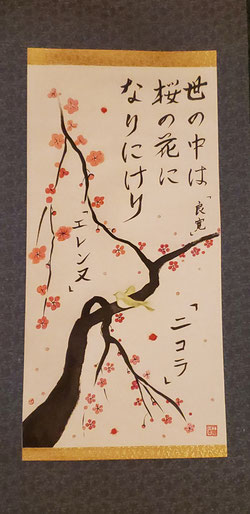 世の中は
桜の花に
なりにけり
「良寛」
「ニコラ」
エレンヌ」